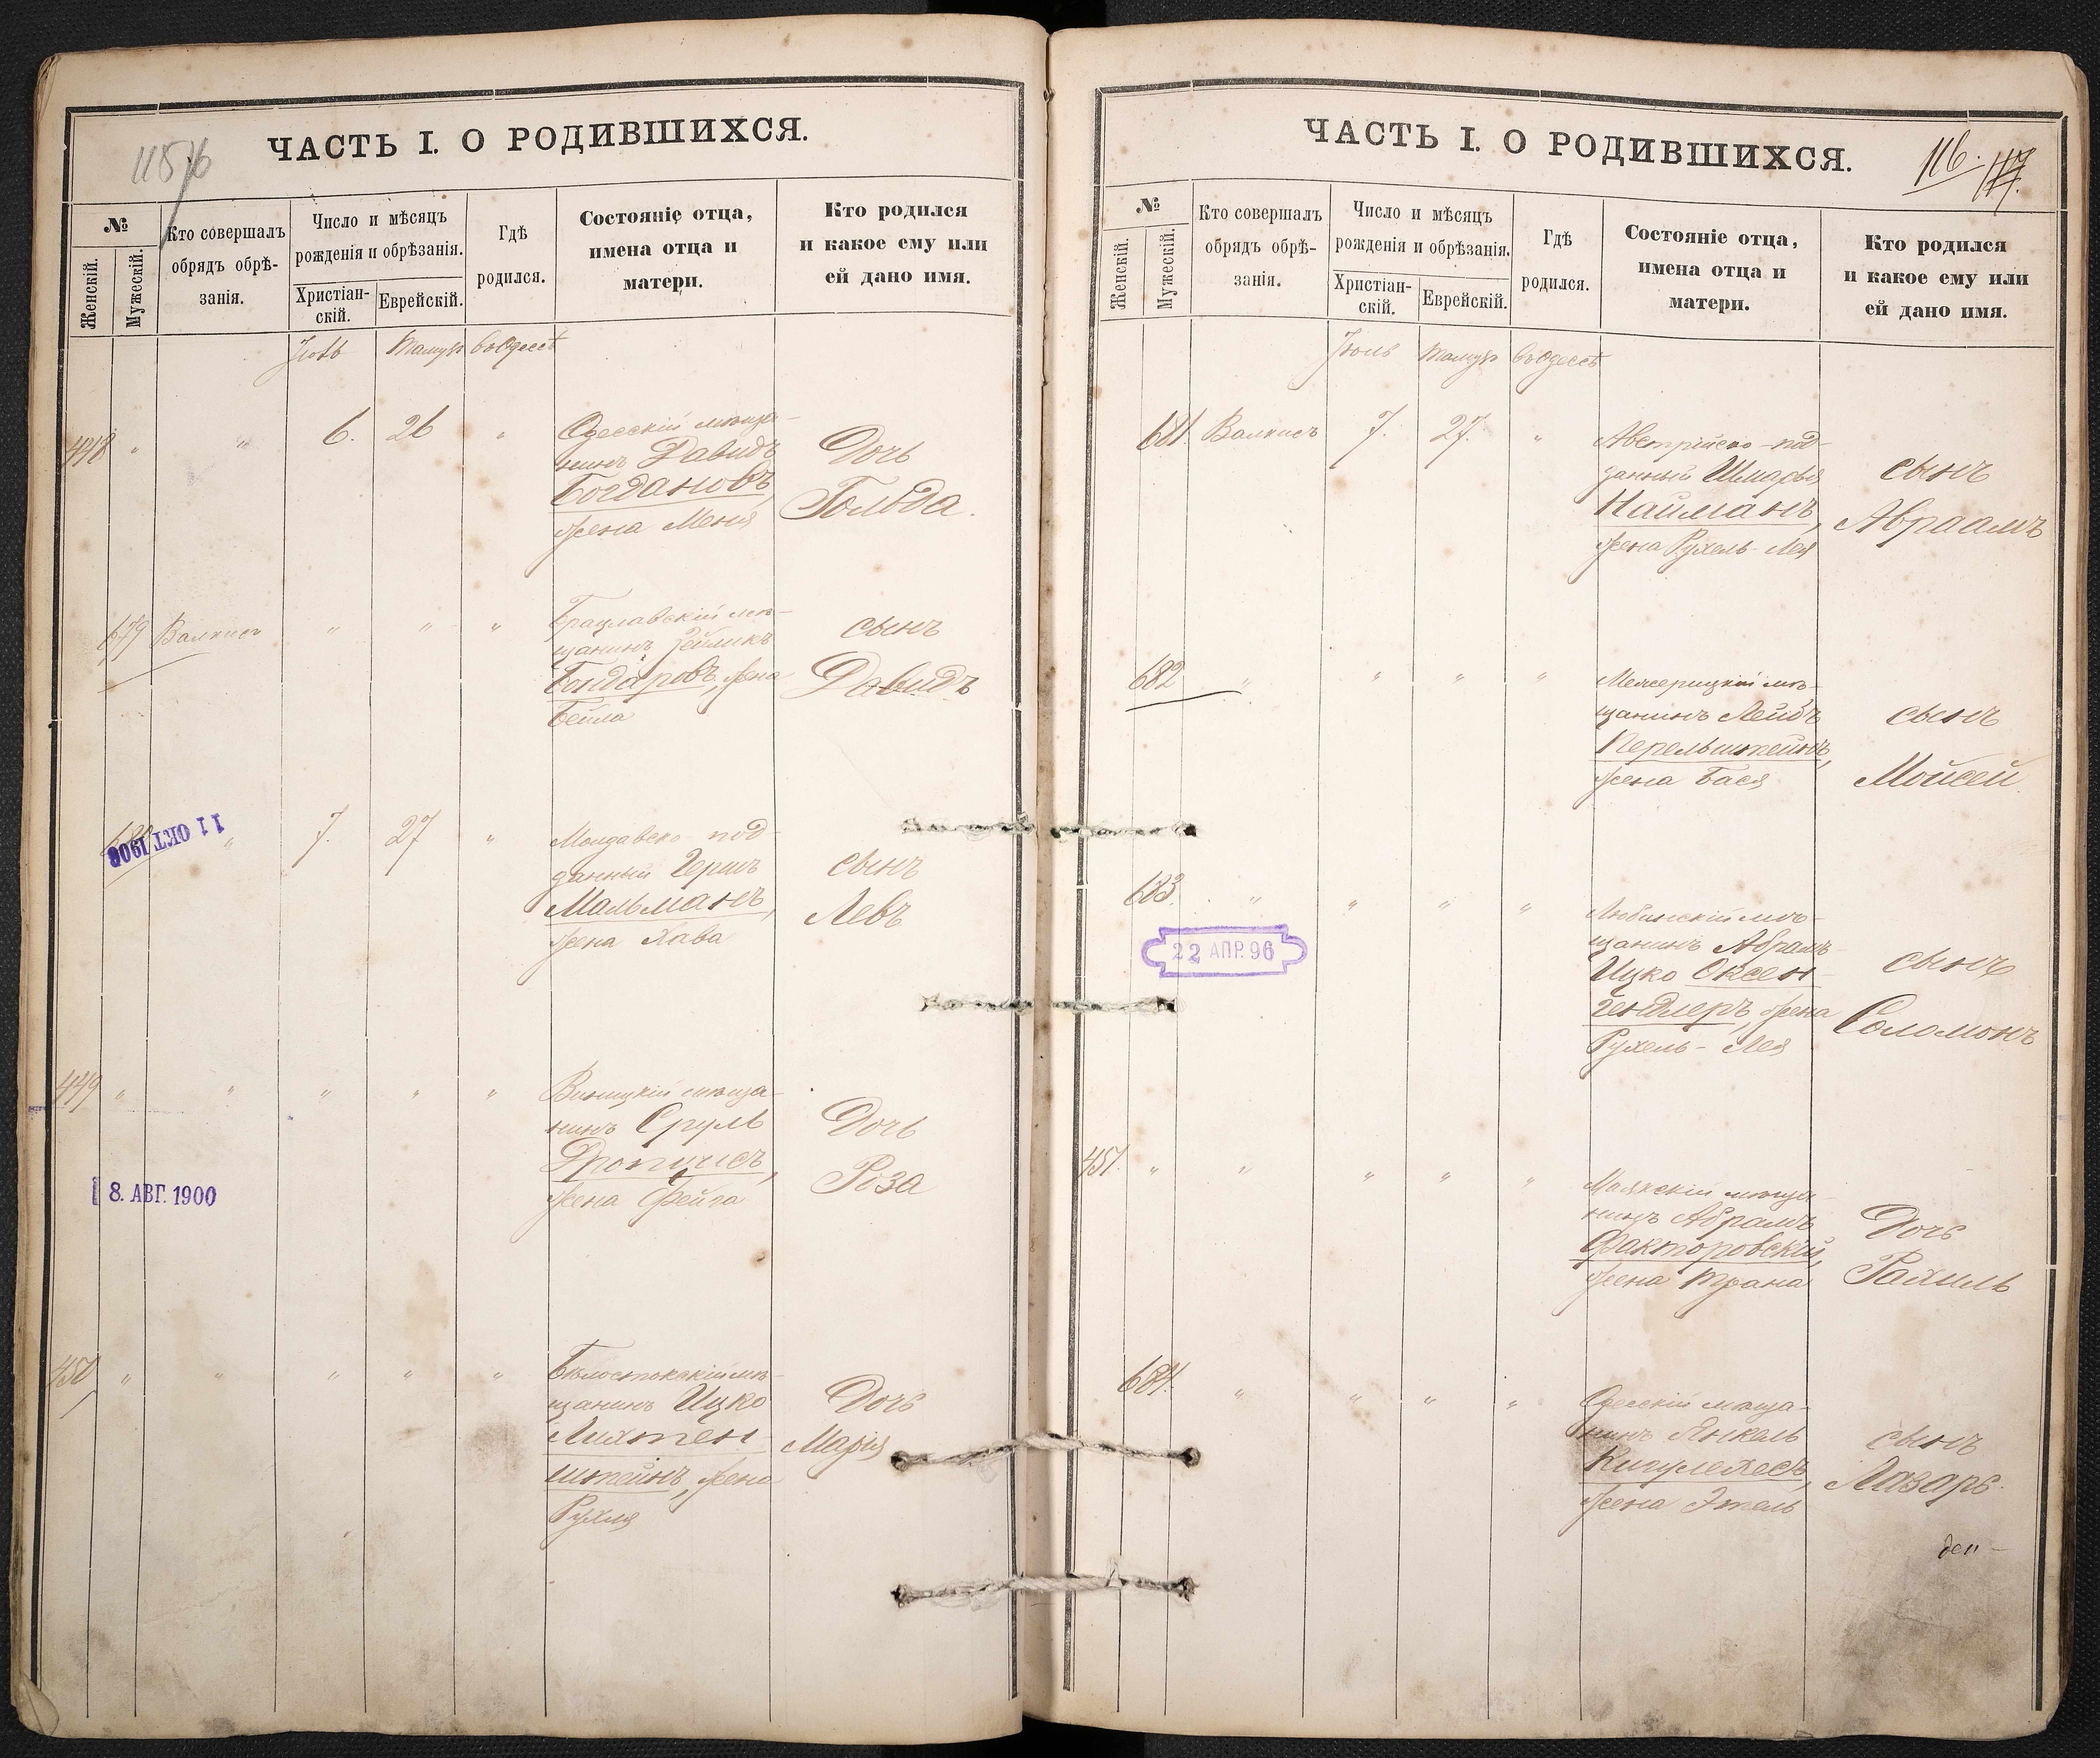 ЧАСТЬ I. О РОДИВШИХСЯ.
№
Женскій.
Мужескій.
Кто совершалъ
обрядъ обрѣ-
занія.
Число и мѣсяцъ
рожденія и обрѣзанія.
Христіан-
скій.
Еврейскій.
Гдѣ
родился.
Состояніе отца,
имена отца и
матери.
Кто родился
и какое ему или
ей дано имя.
Іюль Тамузъ въ Одессѣ
448 " " 6. 26 "
Одесскій мѣща-
нинъ Давидъ
Богдановъ,
жена Меня
Дочь
Гольда.
679 Валкисъ " " "
Брацлавскій мѣ-
щанинъ Зейликъ
Бондаровъ, жена
Бейла
сынъ
Давидъ
680 " 7. 27 "
11 ОКТ 1906
Молдавско-под-
данный Гершъ
Мальманъ,
жена Хава
сынъ
Левъ
449 " " " " "
8. АВГ. 1900
Виницкій мѣща-
нинъ Сруль
жена Фейга
Дочь
Роза
450 " " " " "
Бѣлостокскій мѣ-
щанинъ Ицко
Лихтен-
штейнъ, жена
Рухля
Дочь
Марія
ЧАСТЬ I. О РОДИВШИХСЯ.
116. 117.
№
Женскій.
Мужескій.
Кто совершалъ
обрядъ обрѣ-
занія.
Число и мѣсяцъ
рожденія и обрѣзанія.
Христіан-
скій.
Еврейскій.
Гдѣ
родился.
Состояніе отца,
имена отца и
матери.
Кто родился
и какое ему или
ей дано имя.
Іюль Тамузъ въ Одессѣ
681. Валкисъ 7. 27. "
Австрійско-под-
данный Шмарья
Найманъ,
жена Рухель-Лея
сынъ
Авраамъ
682 " " " "
Межерицкій мѣ-
щанинъ Лейбъ
Перельштейнъ,
жена Бася
сынъ
Мойсей
683. " " " "
22 АПР. 96
Любинскій мѣ-
щанинъ Абрамъ-
Ицко Оксен-
гендлеръ, жена
Рухель-Лея
сынъ
Соломонъ
451. " " " " "
Маякскій мѣща-
нинъ Абрамъ
Факторовскій,
жена Трана
Дочь
Рахиль
684. " " " "
Одесскій мѣща-
нинъ Янкель
Кигулехесъ,
жена Этель
сынъ
Лазарь.